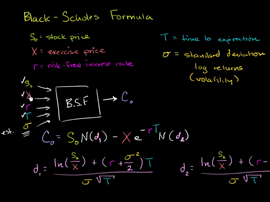 Black-Scholes Formula
S₀ = stock price
X = exercise price
r = risk-free interest rate
T = time to expiration
σ = standard deviation
log returns
(volatility)
✓ S₀
✓ X
✓ r
✓ T
est. σ
B.S.F
C₀
C₀ = S₀N(d₁) - Xe^-rT N(d₂)
d₁ = ln(S₀/X) + (r + σ²/2)T / σ√T
d₂ = ln(S₀/X) + (r - / σ√T